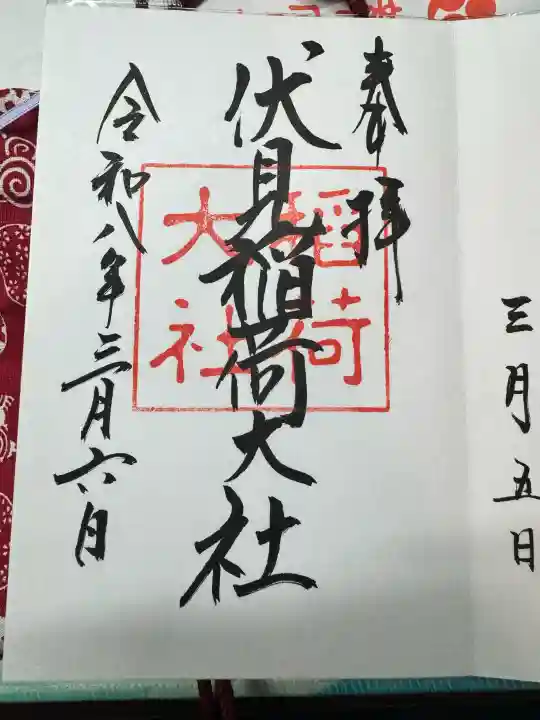 三月五日
奉拝
伏見稲荷大社
稲荷
大社
令和八年三月六日